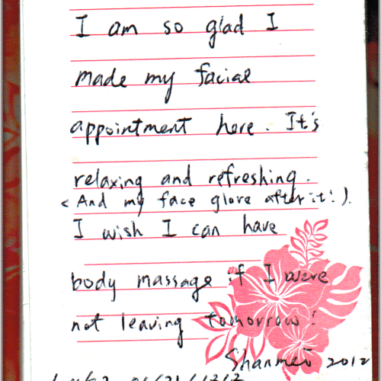 I am so glad I
made my facial
appointment here. It's
relaxing and refreshing.
(And my face glove after it!).
I wish I can have
body massage if I were
not leaving tomorrow!
Shanmei 2012